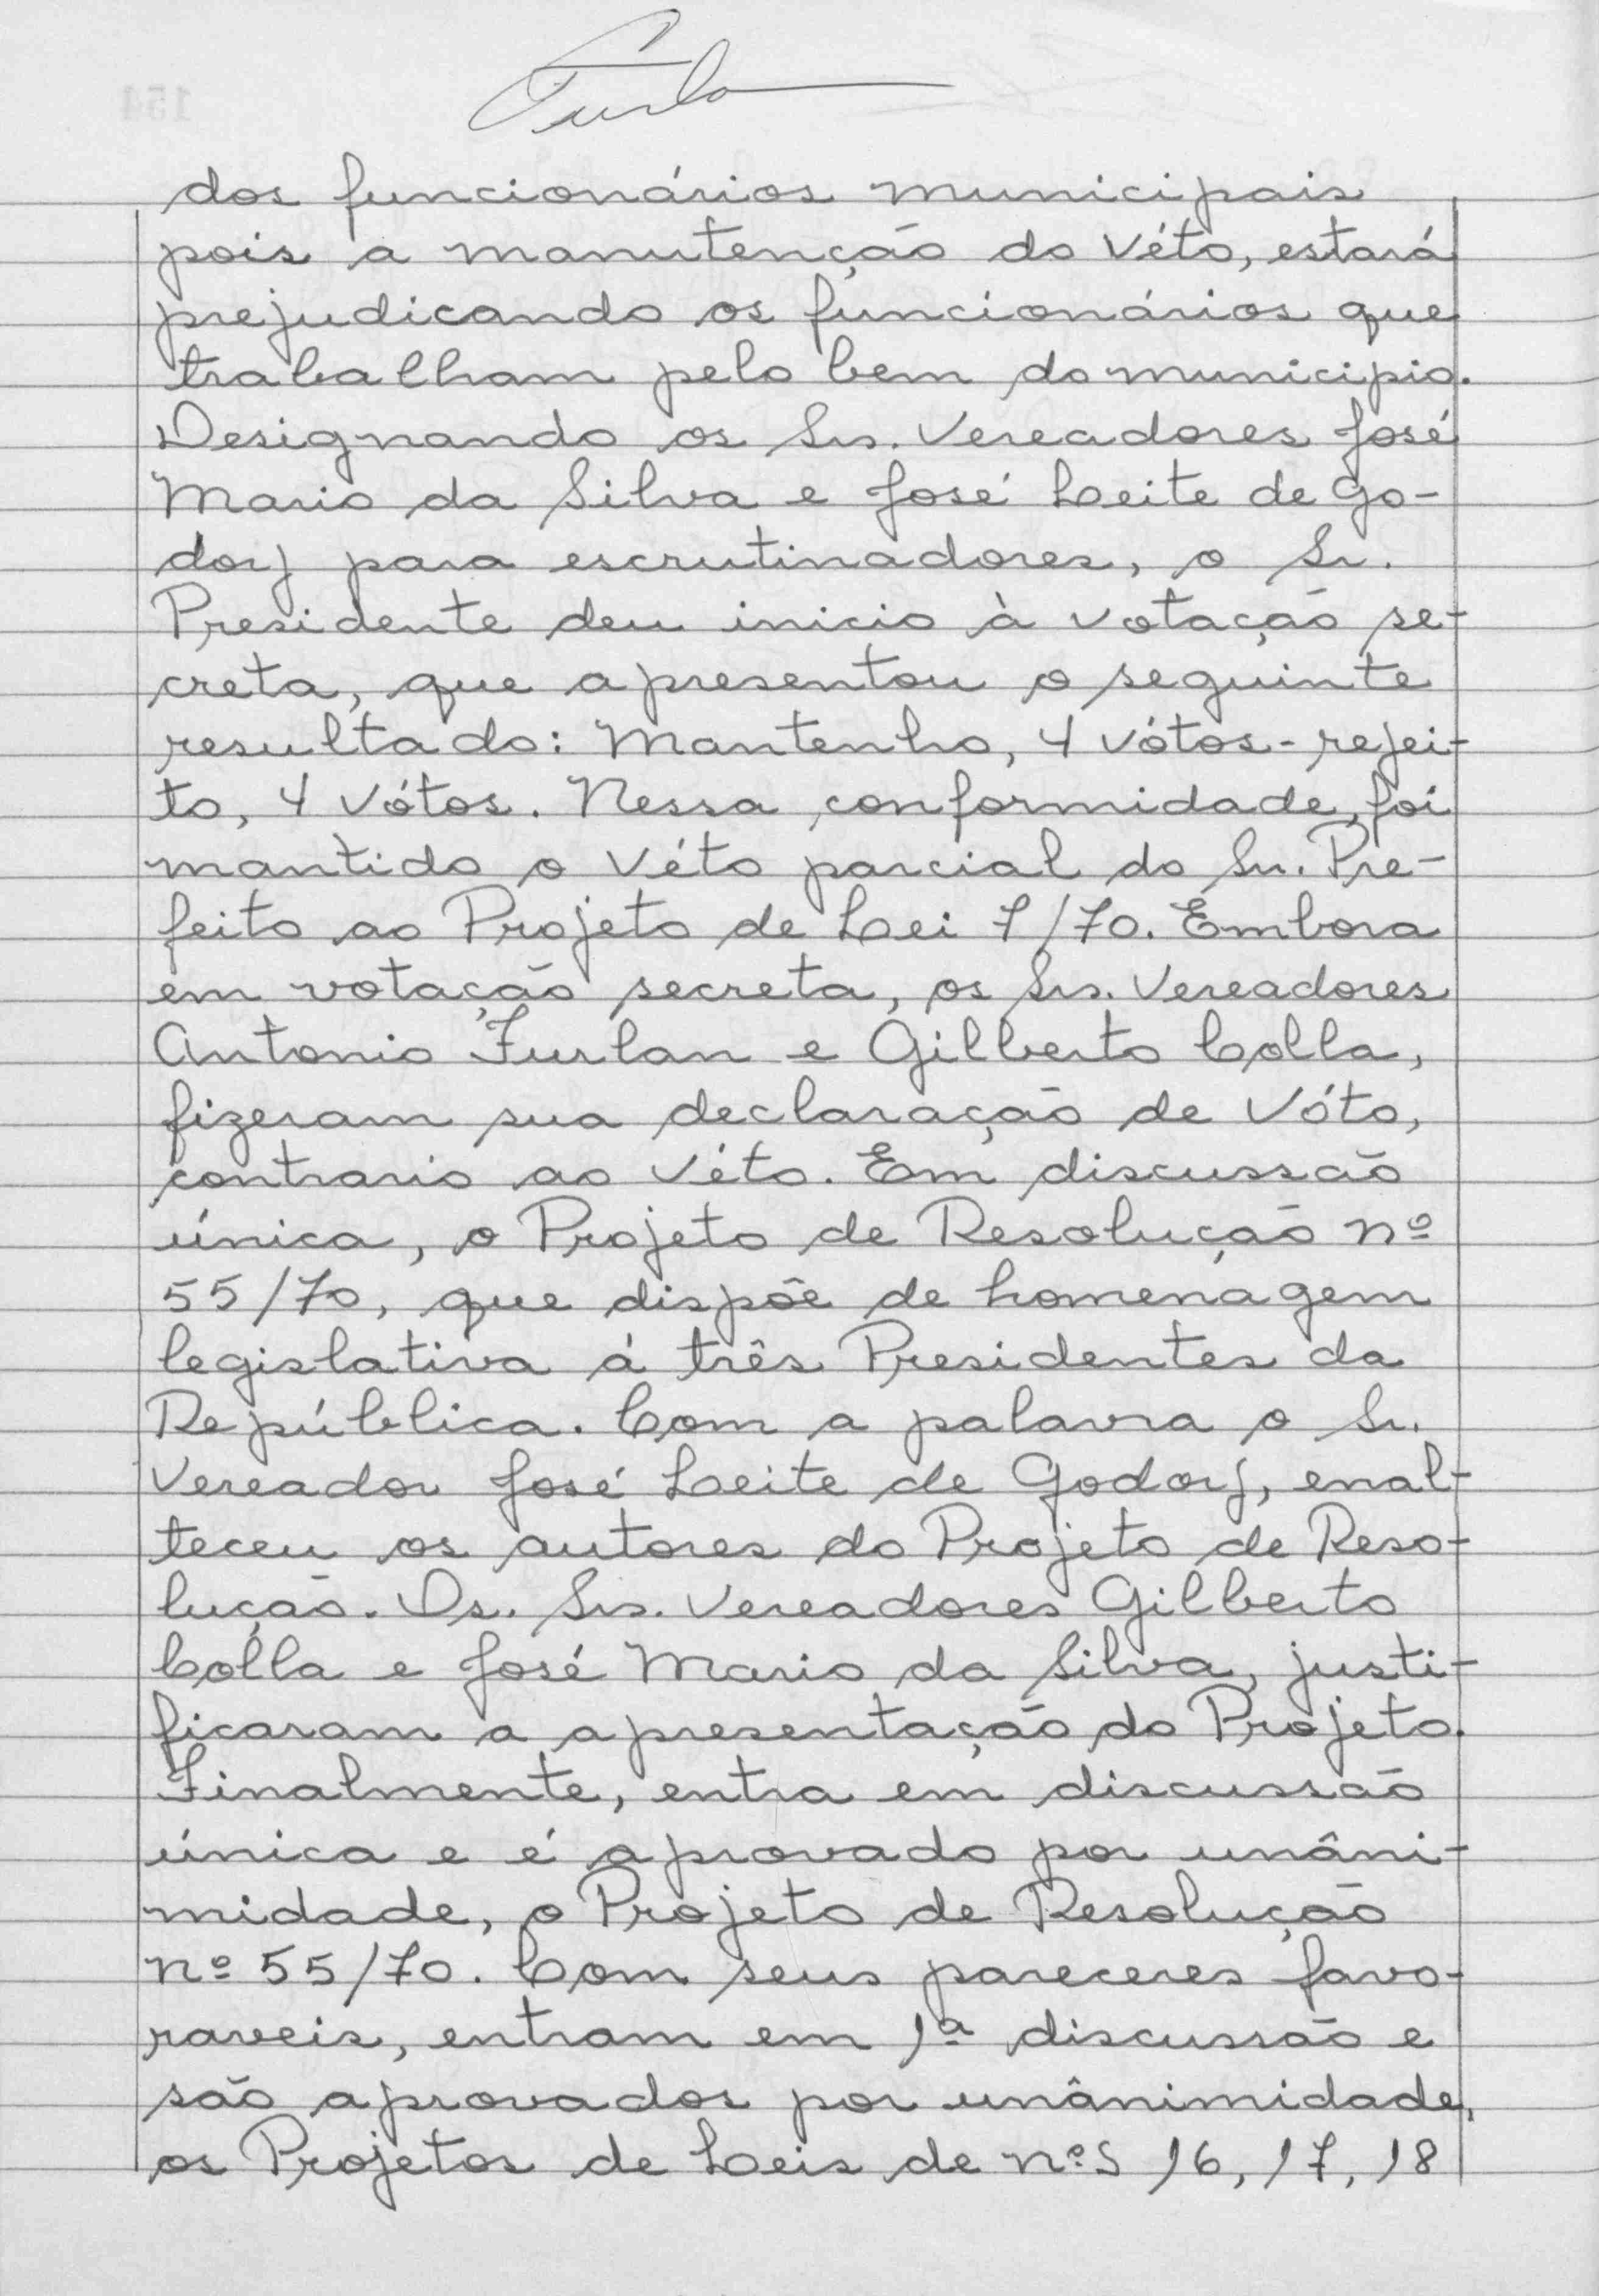 Furlan
dos funcionários municipais
pois a manutenção do Véto, estará
prejudicando os funcionários que
trabalham pelo bem do municipio.
Designando os Srs. Vereadores José
Mario da Silva e José Leite de Go-
doy para escrutinadores, o Sr.
Presidente deu inicio à votação se-
creta, que apresentou o seguinte
resultado: Mantenho, 4 vótos - rejei-
to, 4 vótos. Nessa conformidade, foi
mantido o Véto parcial do Sr. Pre-
feito ao Projeto de Lei 7/70. Embora
em votação secreta, os Srs. Vereadores
Antonio Furlan e Gilberto Colla,
fizeram sua declaração de Vóto,
contrario ao Véto. Em discussão
única, o Projeto de Resolução nº
55/70, que dispõe de homenagem
legislativa á três Presidentes da
República. Com a palavra o Sr.
Vereador José Leite de Godoy, enal-
teceu os autores do Projeto de Reso-
lução. Os. Srs. Vereadores Gilberto
Colla e José Mario da Silva, justi-
ficaram a apresentação do Projeto.
Finalmente, entra em discussão
única e é aprovado por unâni-
midade, o Projeto de Resolução
nº 55/70. Com seus pareceres favo-
raveis, entram em 1ª discussão e
são aprovados por unânimidade,
os Projetos de Leis de nºs 16, 17, 18